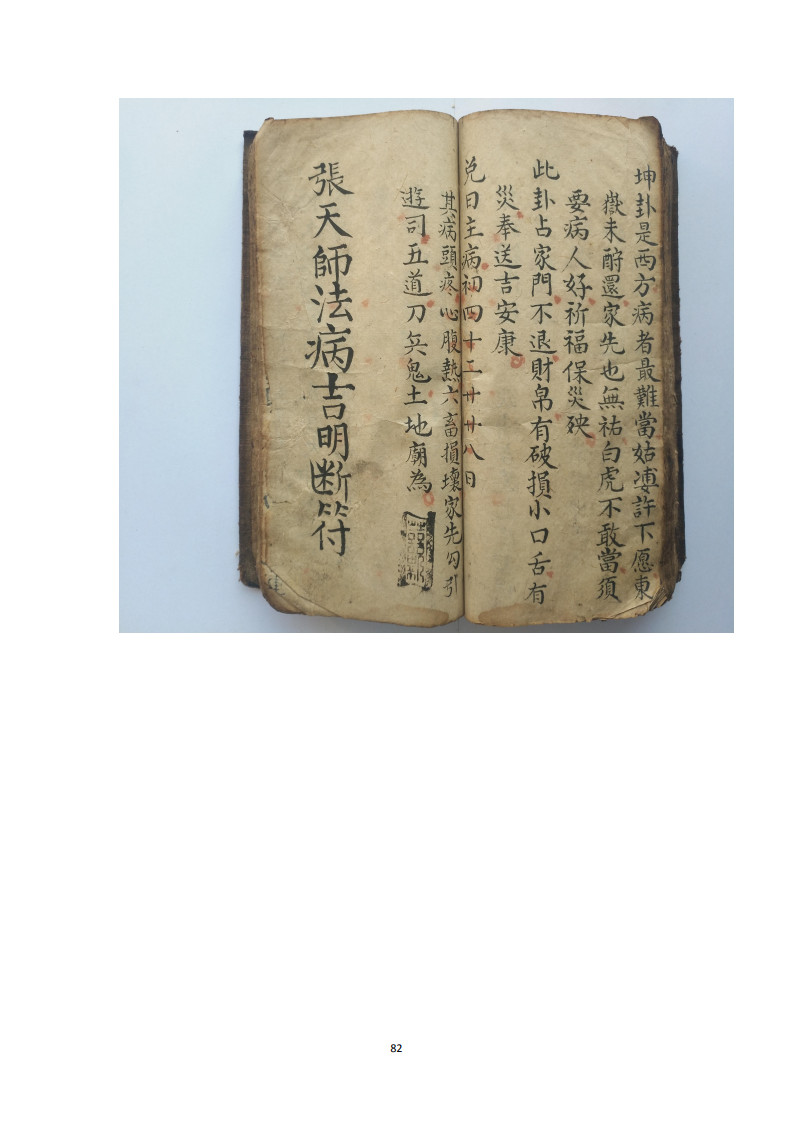 坤卦是西方病者最難當姑婆許下愿東
嶽未酧還家先也無祐白虎不敢當須
要病人好祈福保災殃
此卦占家門不退財帛有破損小口舌有
災奉送吉安康
兌日主病初四十二廿廿八日
其病頭疼心腹熱六畜損壞家先勾引
遊司五道刀兵鬼土地廟為
張天師法病吉明断符
82